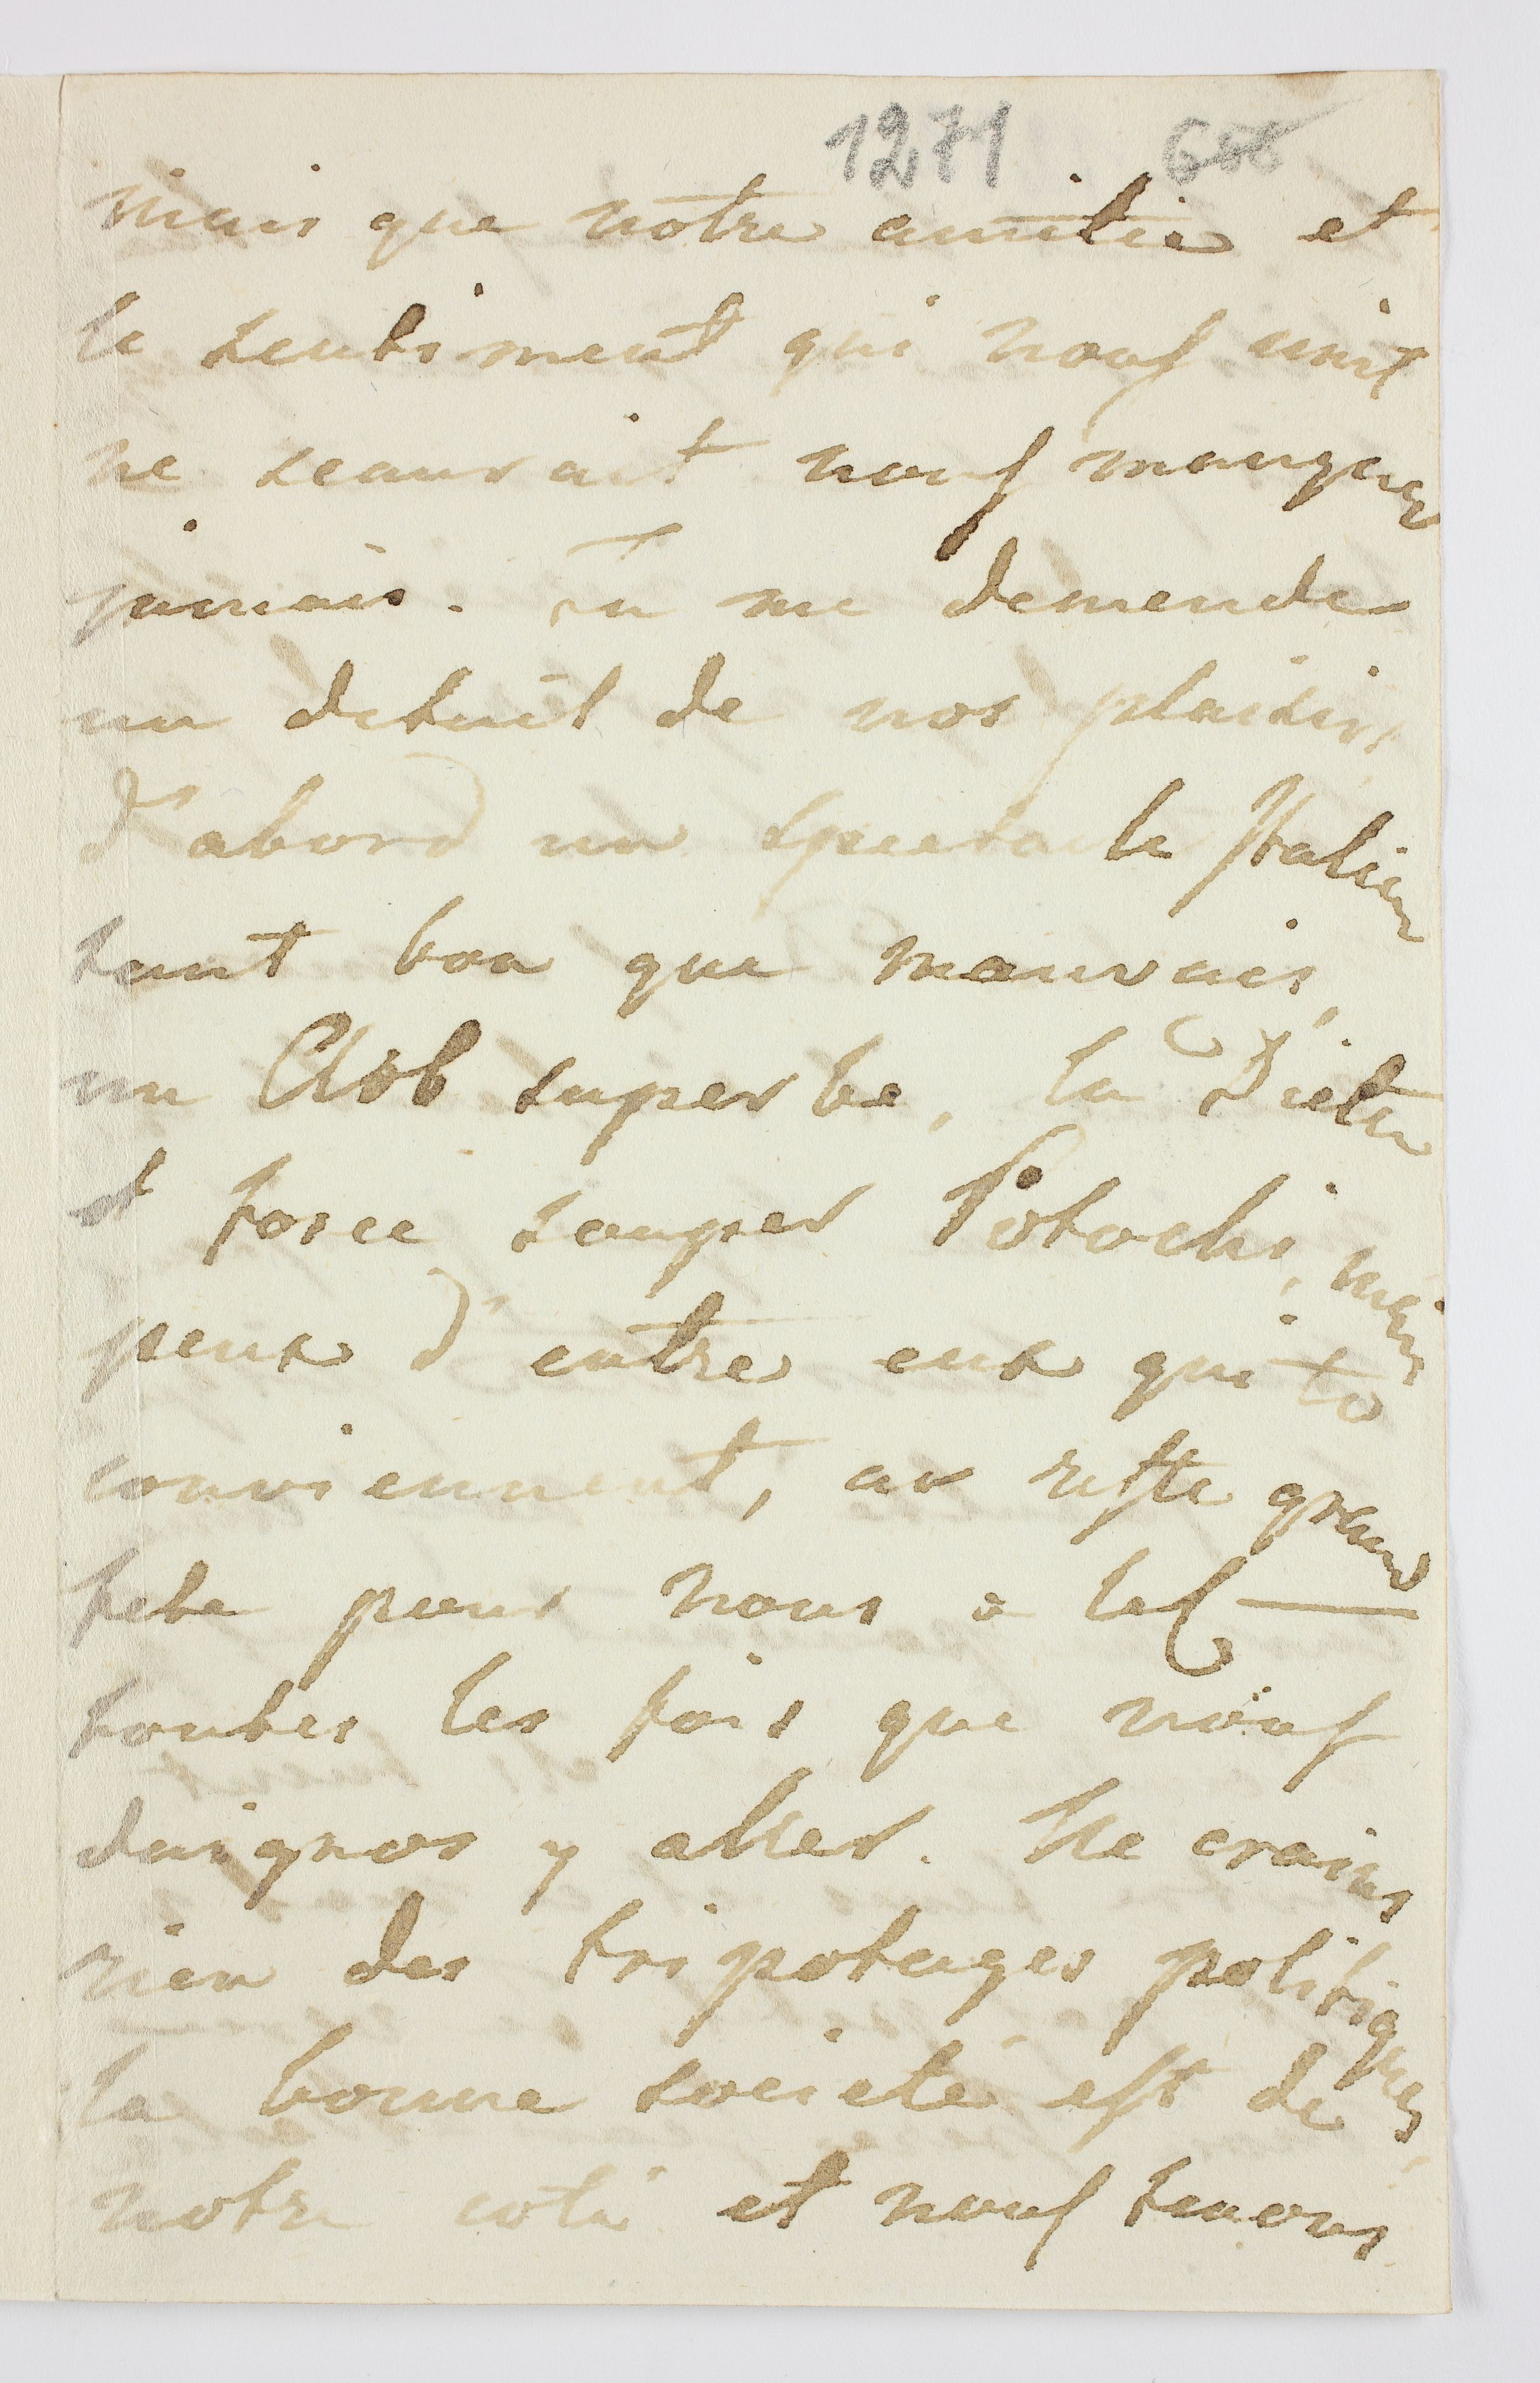 1271
mais que notre amitie et
le sentiment qui nous unit
ne scaurait nous manquer
jamais. Tu me demende
un detail de nos plaisirs
d'abord un spectacle Italien
tant bon que mauvais,
un Clob superbe, la Diete
et force souper Potocki, mais
peux d'entre eux qui te
conviennent, au reste grand
fete pour nous a
toutes les fois que nous
daignos y aller. Ne crains
rien des tripotages politiques,
la bonne societé est de
notre coté et nous tenons